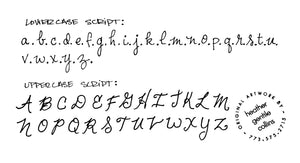 LOWERCASE SCRIPT:
a.b.c.d.e.f.g.h.i.j.k.l.m.n.o.p.q.r.s.t.u.
v.w.x.y.z.
UPPERCASE SCRIPT:
A B C D E F G H I J K L M
N O P Q R S T U V W X Y Z
ORIGINAL ARTWORK BY
heather
gentile
collins